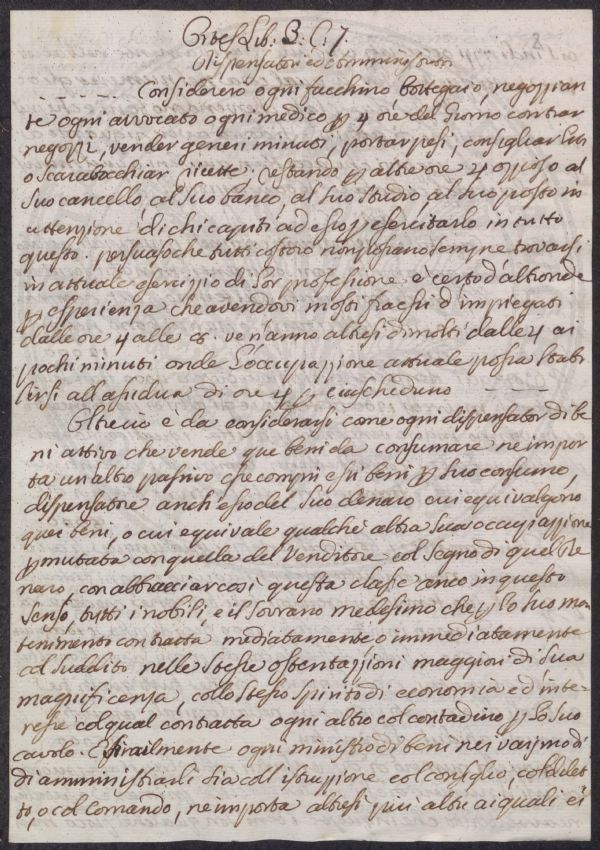 Lib. 3. C. 7.
Dispensatori ed comminissori
Considererò ogni facchino bottegaio, negozzian
te ogni avvocato ogni medico p 4 ore del Giorno contrar
negozzi, vender generi minuti, portar pesi, consigliar liti
o scarabocchiar ricette, restando p altre ore 4 appresso al
suo cancello, al suo banco, al suo studio, al suo posto in
attenzione di chi capiti ad esso p esercitarlo in tutto
questo. persuaso che tutti costoro non possano sempre trovarsi
in attuale esercizio di lor professione è certo d'altronde
p esperienza che avendovi molti fra essi d'impiegati
dalle ore 4 alle 8. ve n'anno altresì di molti dalle 4 ai
pochi minuti onde l'occupazzione attuale possa stabi
lirsi all'assidua di ore 4 p ciascheduno
Oltreciò è da considerarsi come ogni dispensator di be
ni attivo che vende que beni da consumare ne impor
ta un altro passivo che compri essi beni p suo consumo,
dispensatore anch'esso del suo denaro cui equivalgono
quei beni, o cui equivale qualche altra sua occupazzione
pmutata con quella del Venditore col segno di quel De
naro, con abbracciar così questa classe anco in questo
senso, tutti i nobili, e il sovrano medesimo che p lo suo man
tenimento contratta mediatamente o immediatamente
col suddito nelle stesse ostentazzioni maggiori di sua
magnificenza, collo stesso spirito di economia ed inte
resse col qual contratta ogni altro col contadino p lo suo
cavolo. E similmente ogni ministro di beni nei varj modi
di amministrarli sia coll'istruzzione col consiglio, col dilet
to, o col comando, ne importa altresì più altri ai quali ei